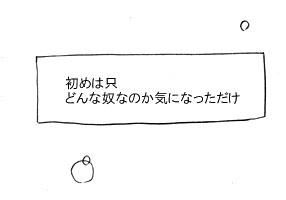 初めは只
どんな奴なのか気になっただけ